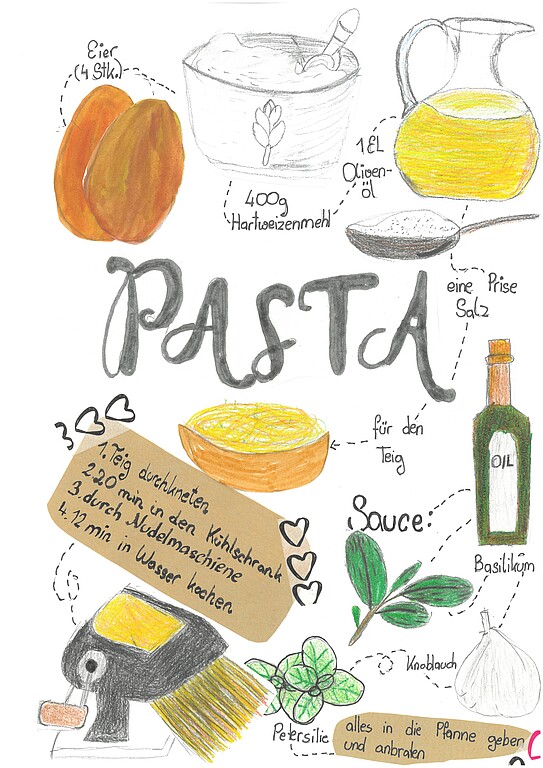 Eier
(4 Stk.)
1 EL
Oliven-
öl
400g
Hartweizenmehl
eine Prise
Salz
PASTA
für den
Teig
1. Teig durchkneten
2. 20 min in den Kühlschrank
3. durch Nudelmaschiene
4. 12 min in Wasser kochen
OIL
Sauce:
Basilikum
Knoblauch
Petersilie
alles in die Pfanne geben
und anbraten